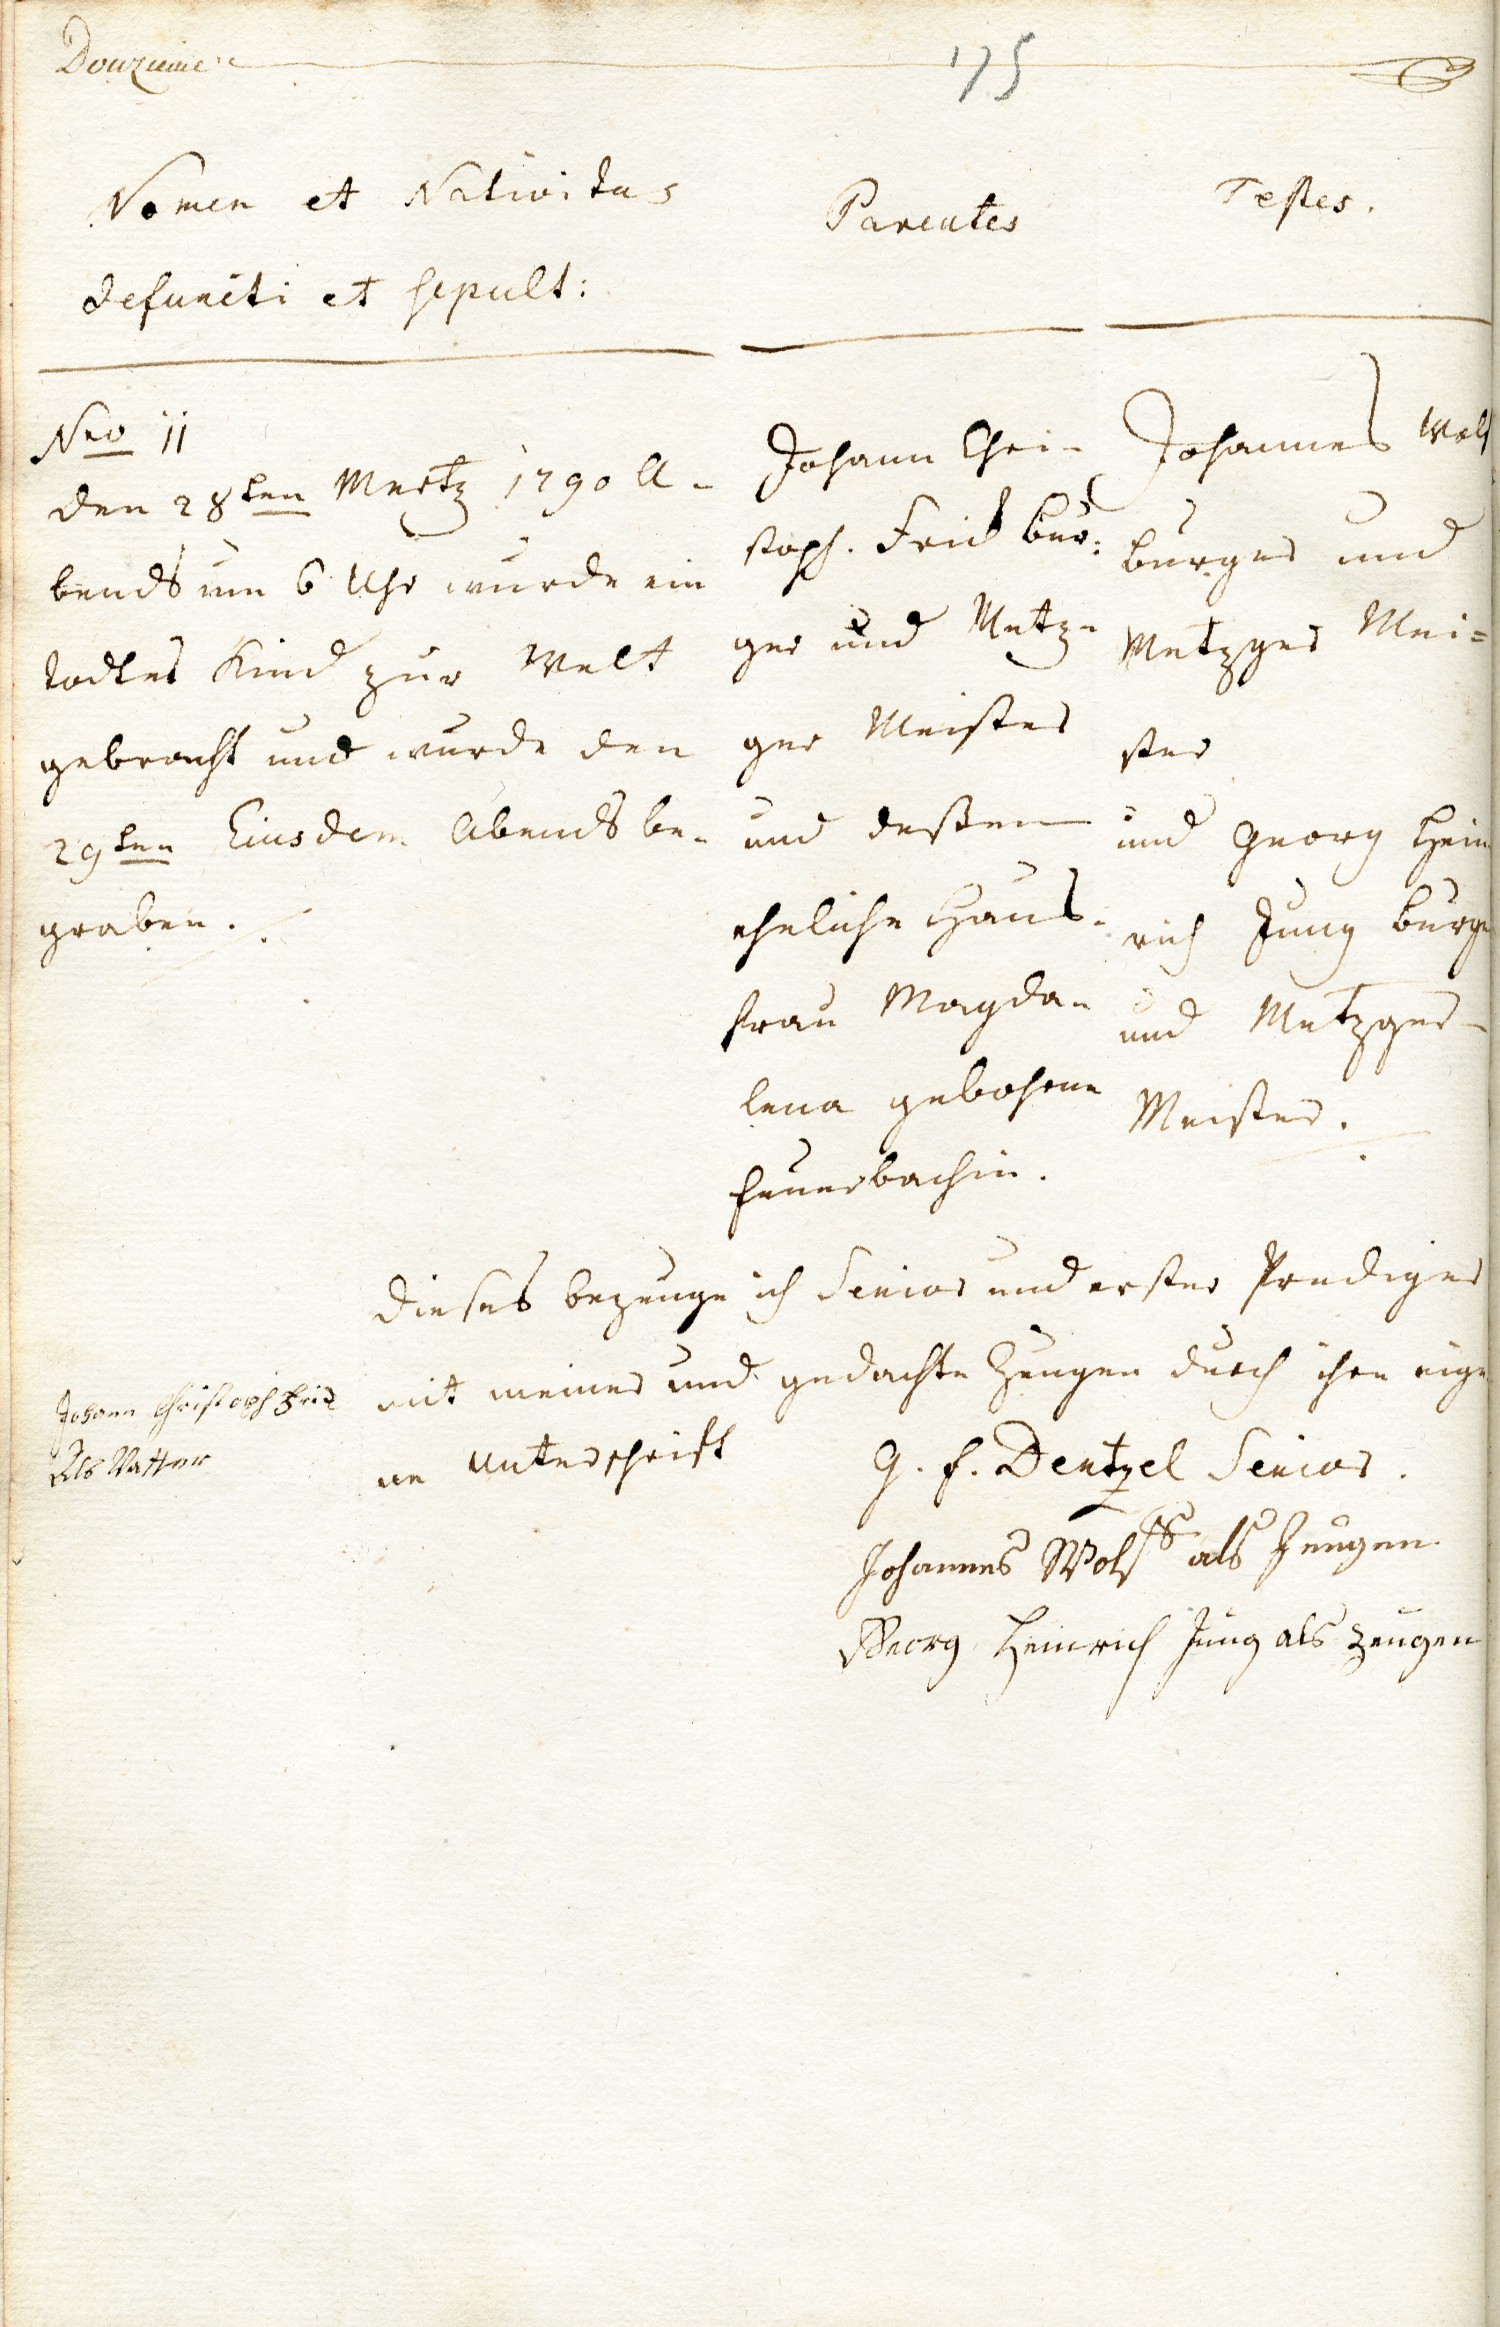 Douzieme
175
Nomen et Nativitas
defuncti et sepult:
Parentes
Testes.
Nro 11
den 28ten Mertz 1790 A-
bends um 6 Uhr wurde ein
todtes Kind zur Welt
gebracht und wurde den
29ten Eiusdem Abends be-
graben.
Johann Chri-
stoph. Frid Bur:
ger und Metz-
ger Meister
und deßen
eheliche Haus-
frau Magda-
lena gebohrne
Feuerbachin.
Johannes Wolf
burger und
Metzger Mei=
ster
und Georg Hein
rich Jung burger
und Metzger-
Meister.
Dieses bezeuge ich Senior und erster Prediger
mit meiner und gedachte Zeugen durch ihre eige
ne Unterschrift
Johann Christoph Frid
Als Vatter
G. F. Dentzel Senior.
Johannes Wolff als Zeugen
Georg Heinrich Jung als Zeugen